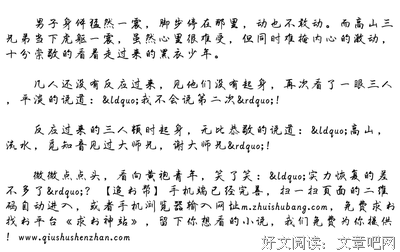 男子身体猛然一震，脚步停在那里，动也不敢动。而高山三
兄弟当下虎躯一震，虽然心里很难受，但同时难掩内心的激动，
十分崇敬的看着走过来的黑衣少年。
几人还没有反应过来，见他们没有起身，再次看了一眼三人
，平淡的说道：&ldquo;我不会说第二次&rdquo;！
反应过来的三人顿时起身，无比恭敬的说道：&ldquo;高山，
流水，见知音见过大师兄，谢大师兄&rdquo;！
微微点点头，看向黄袍青年，笑了笑：&ldquo;实力恢复的差
不多了&rdquo;？【追书帮】手机端已经完善，扫一扫页面的二维
码自动进入，或者手机浏览器输入网址m.zhuishubang.com，免费求书
找书平台《求书神站》，留下你想看的小说，我们免费为你提供
！www.qiushushenzhan.com
好文阅读：文章吧网